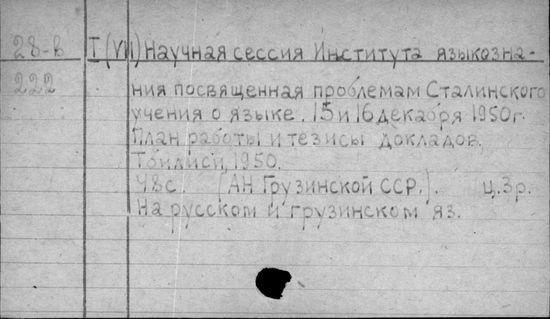 28-в I (VII) Научная сессия Института языкозна-
222 ния посвященная проблемам Сталинского
учения о языке. 15 и 16 декабря 1950г.
План работы и тезисы докладов.
Тбилиси, 1950.
48с. (АН Грузинской ССР.). ц.3р.
На русском и грузинском яз.